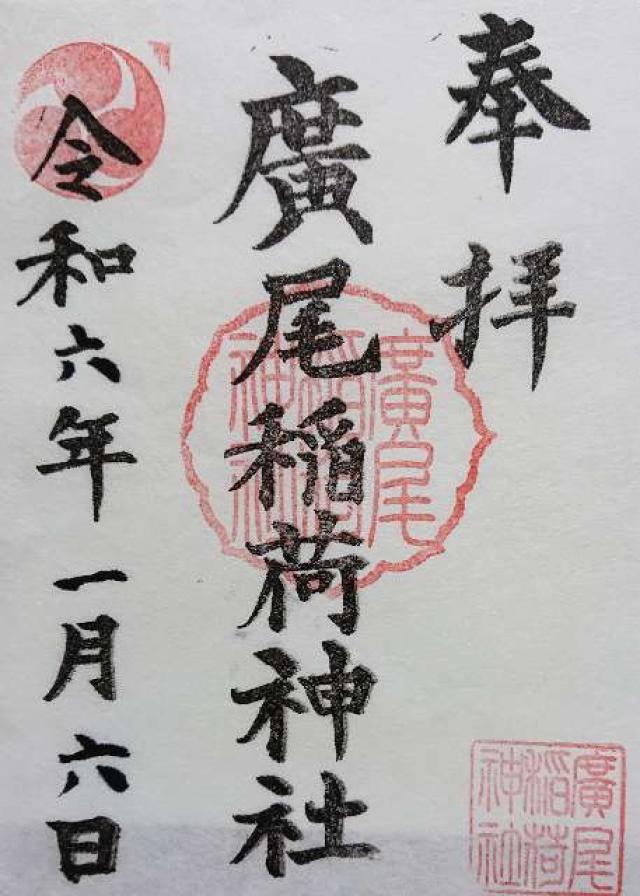 奉拝
廣尾稲荷神社
令和六年一月六日
廣尾
稲荷
神社
廣尾
稲荷
神社